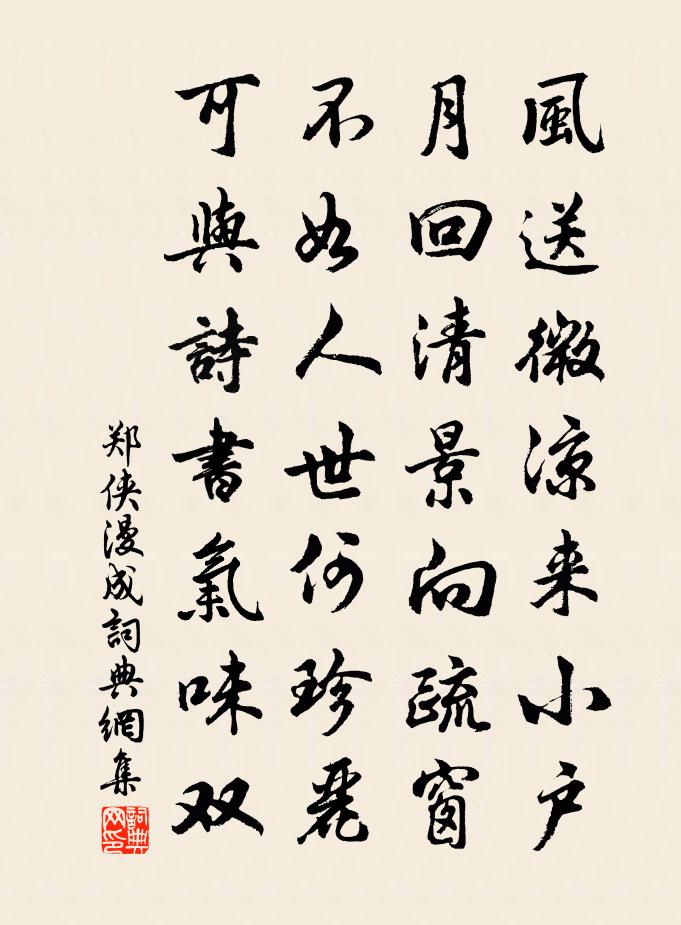 風送微凉来小户
月回清景向疏窗
不如人世何珍麗
可與詩書氣味双
郑侠漫成詞典網集
詞典網印